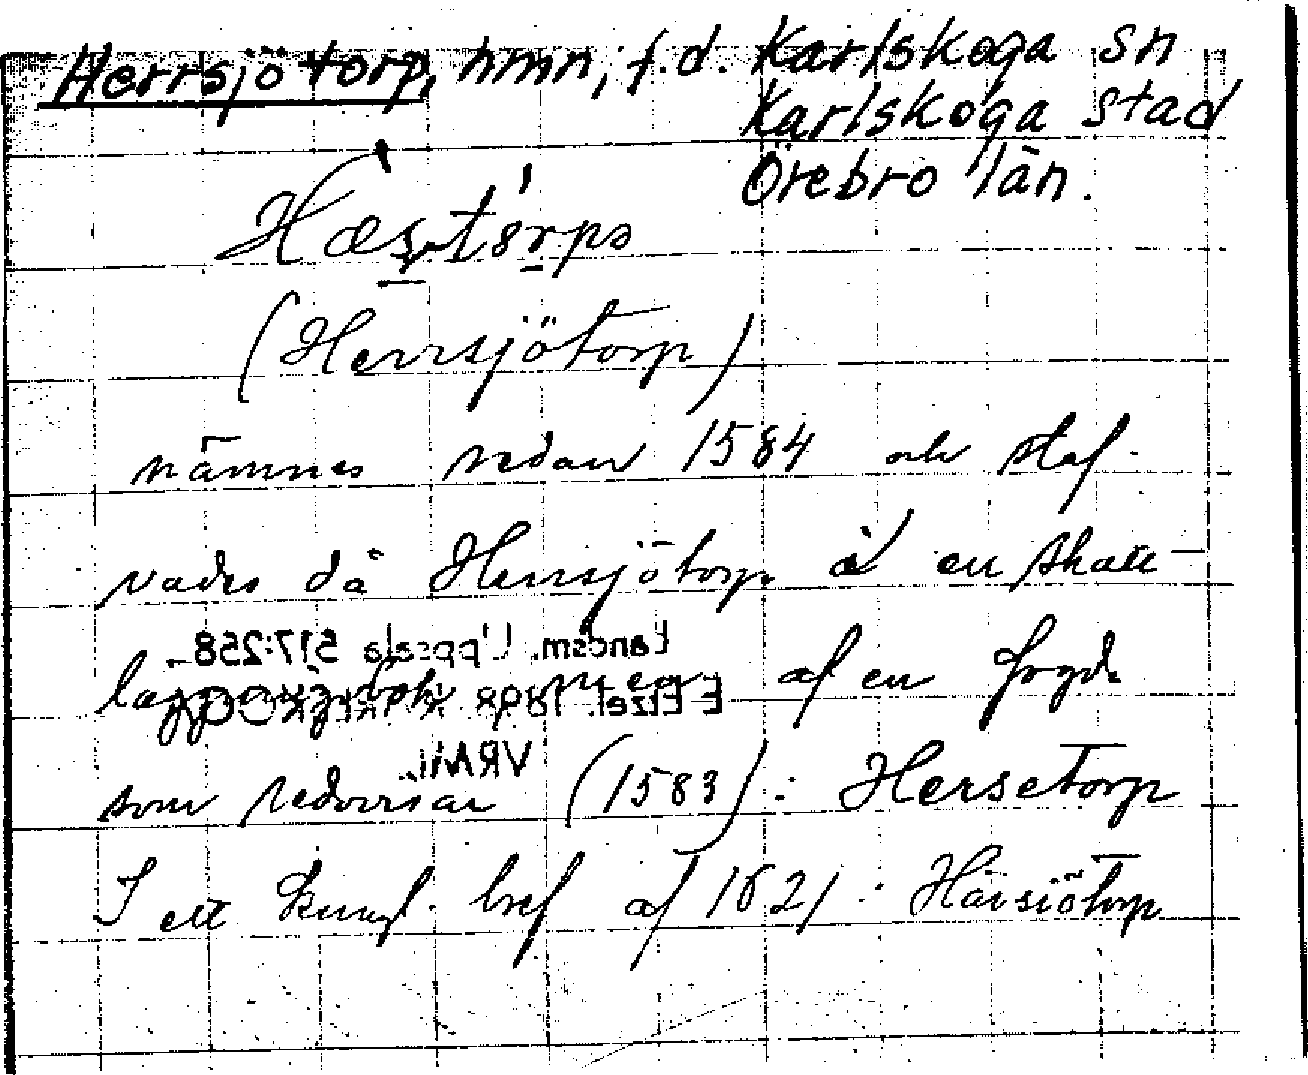 Herrsjötorp, hmn, f.d. Karlskoga sn
Karlskoga stad
Örebro län.
(Herrsjötorp)
nämnes redan 1584 och staf-
vades då Herrsjötorp i en skatt-
läggningsbok men af en fogde
som redovisar (1583): Hersetorp
I ett kungl. bref af 1621: Härsiötorp
Landsm. Uppsala 517:258
E Etzel. 1898